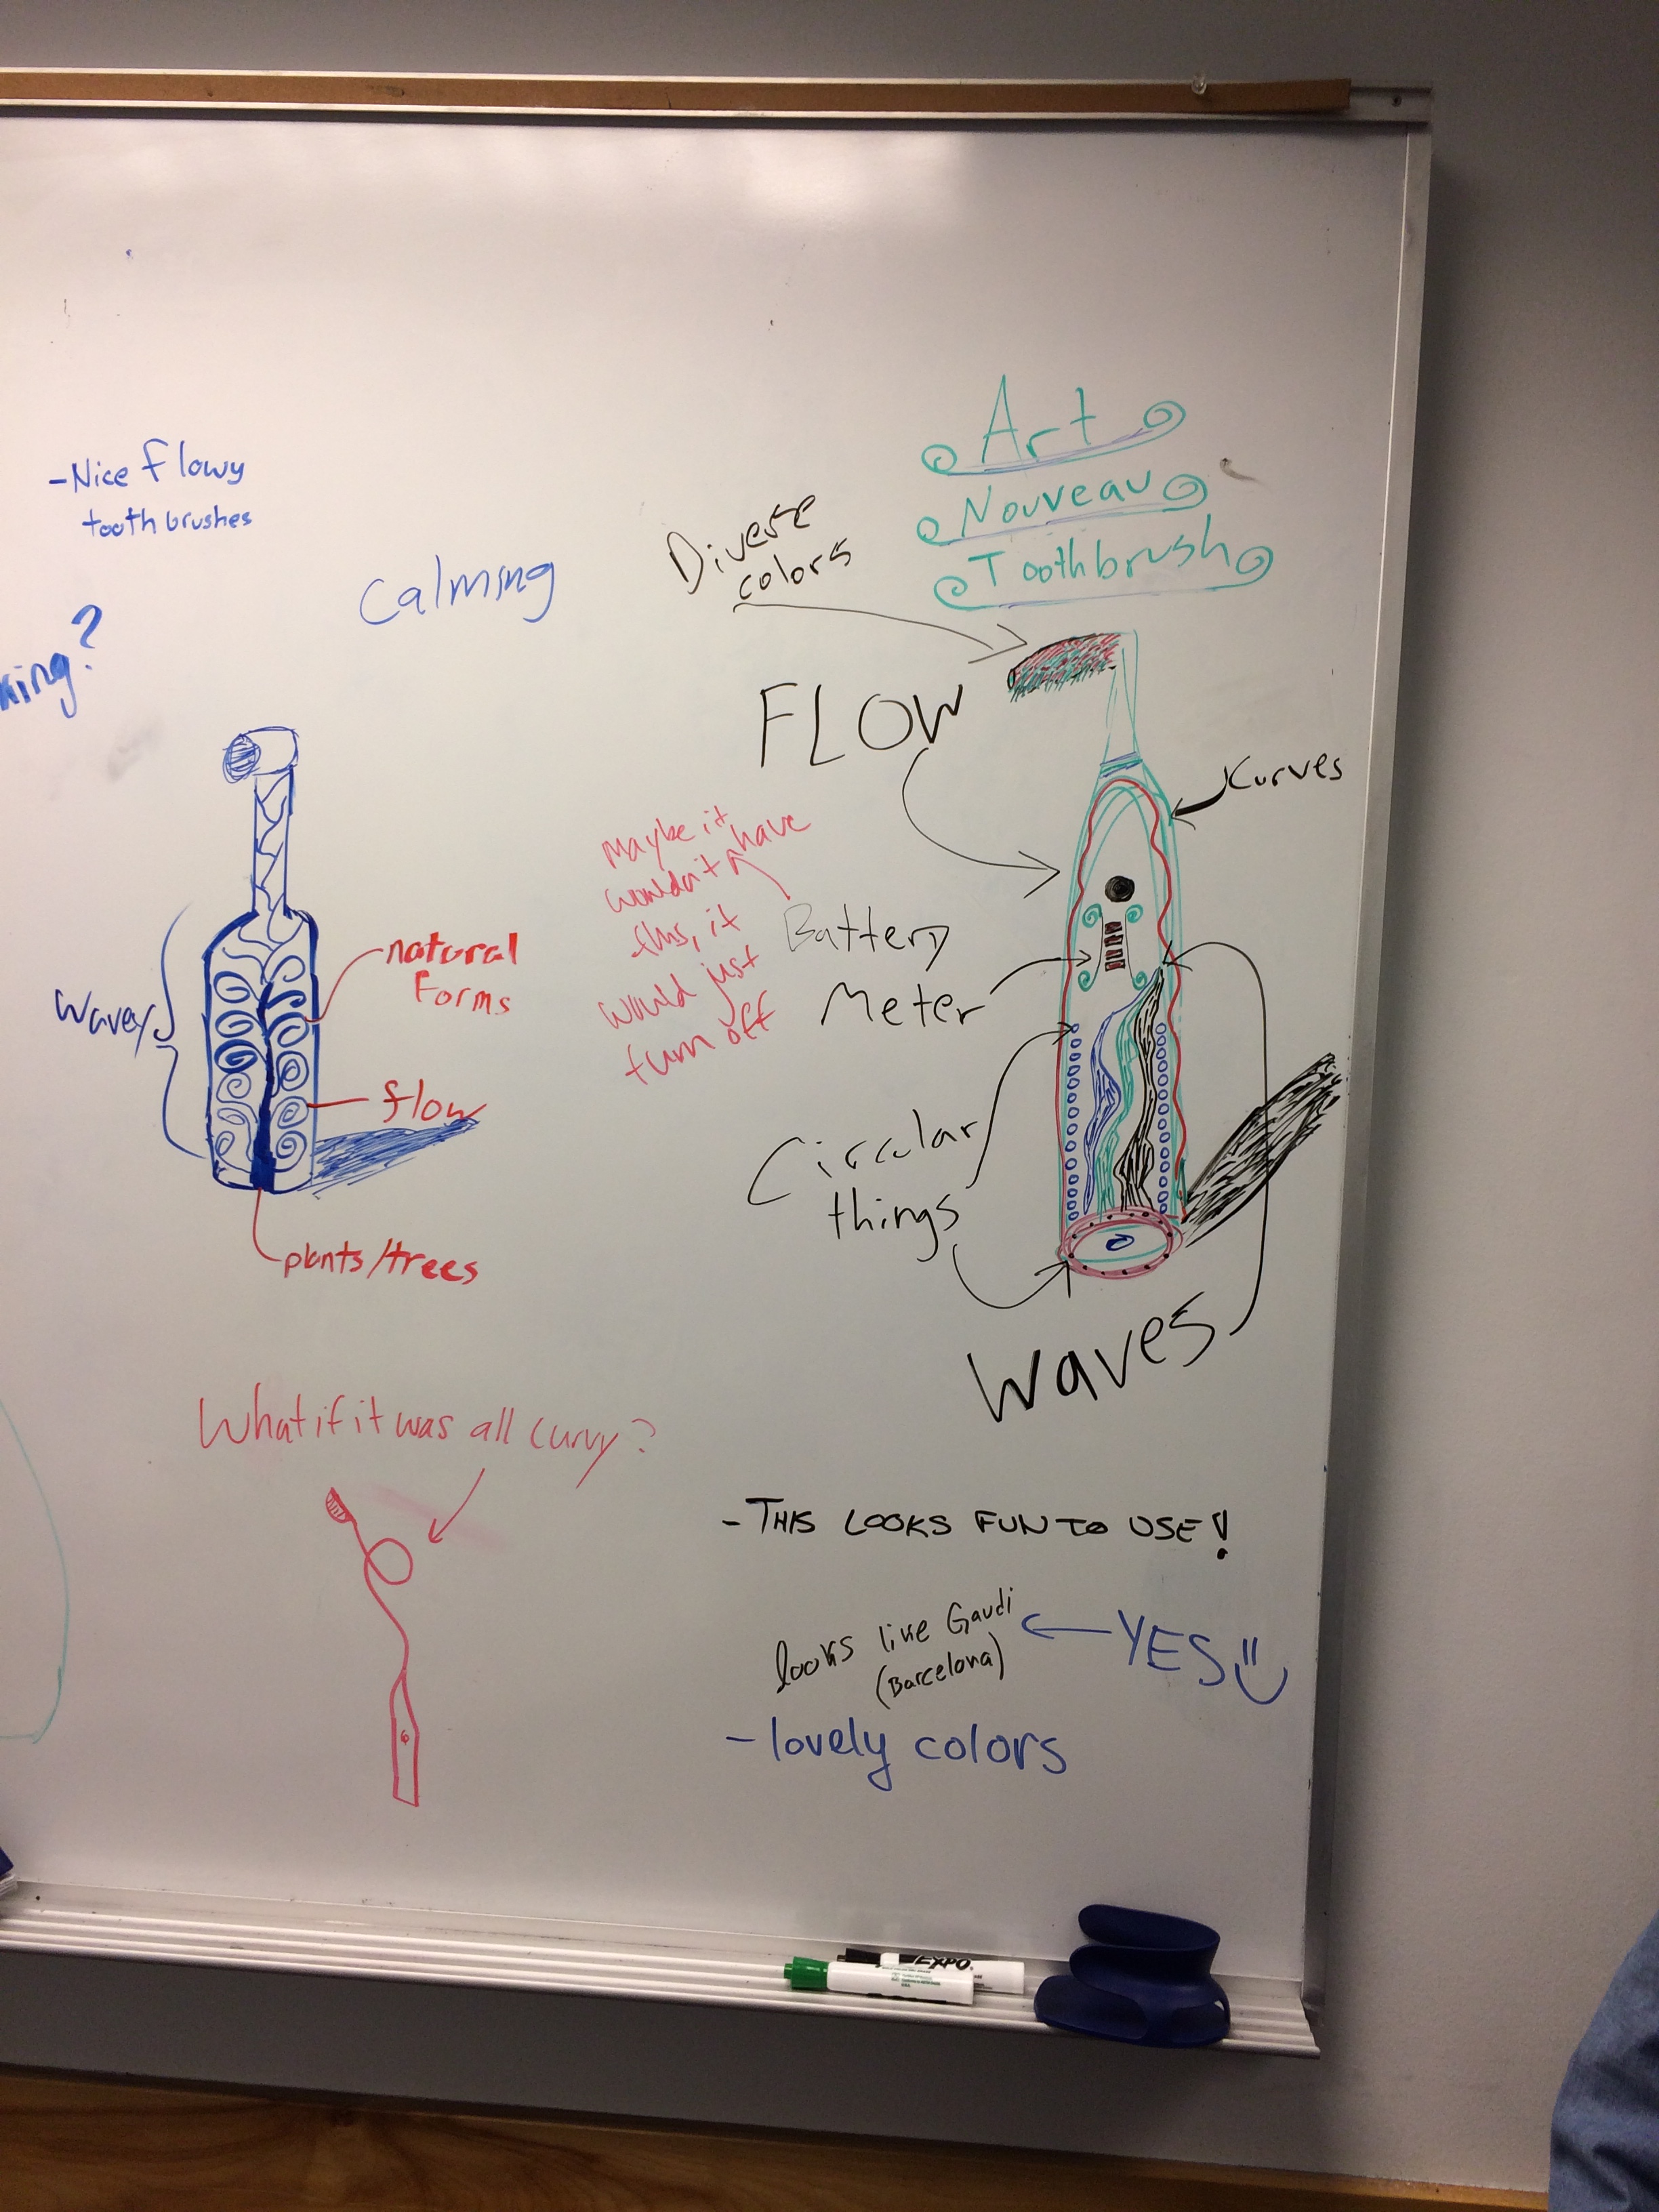 -Nice flowy
toothbrushes
Calming
?
Wavey
natural
forms
flow
plants/trees
What if it was all curvy?
Art
Nouveau
Toothbrush
Diverse
colors
FLOW
Curves
maybe it
wouldn't have
this, it
would just
turn off
Battery
Meter
Circular
things
Waves
-THIS LOOKS FUN TO USE!
looks like Gaudi
(Barcelona)
YES
-lovely colors
EXPO